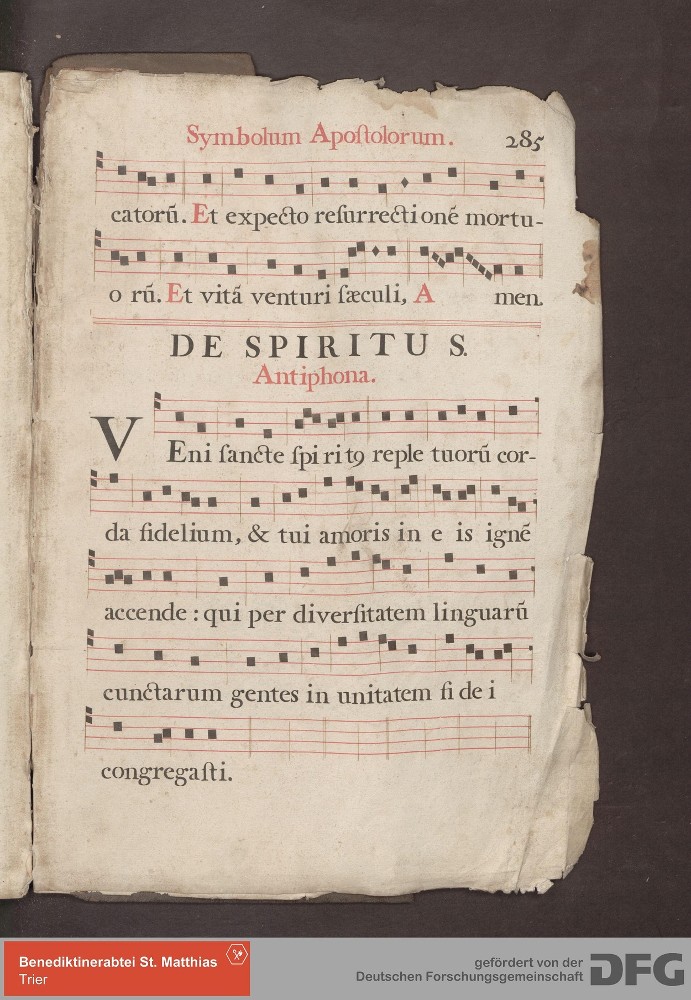 Symbolum Apoſtolorum. 285
catorũ. Et expecto reſurrectionẽ mortu-
o rũ. Et vitã venturi ſæculi, A men.
DE SPIRITU S.
Antiphona.
VEni ſancte ſpi ri tꝰ reple tuorũ cor-
da fidelium, & tui amoris in e is ignẽ
accende : qui per diverſitatem linguarũ
cunctarum gentes in unitatem fi de i
congregaſti.
Benediktinerabtei St. Matthias
Trier
gefördert von der
Deutschen Forschungsgemeinschaft DFG